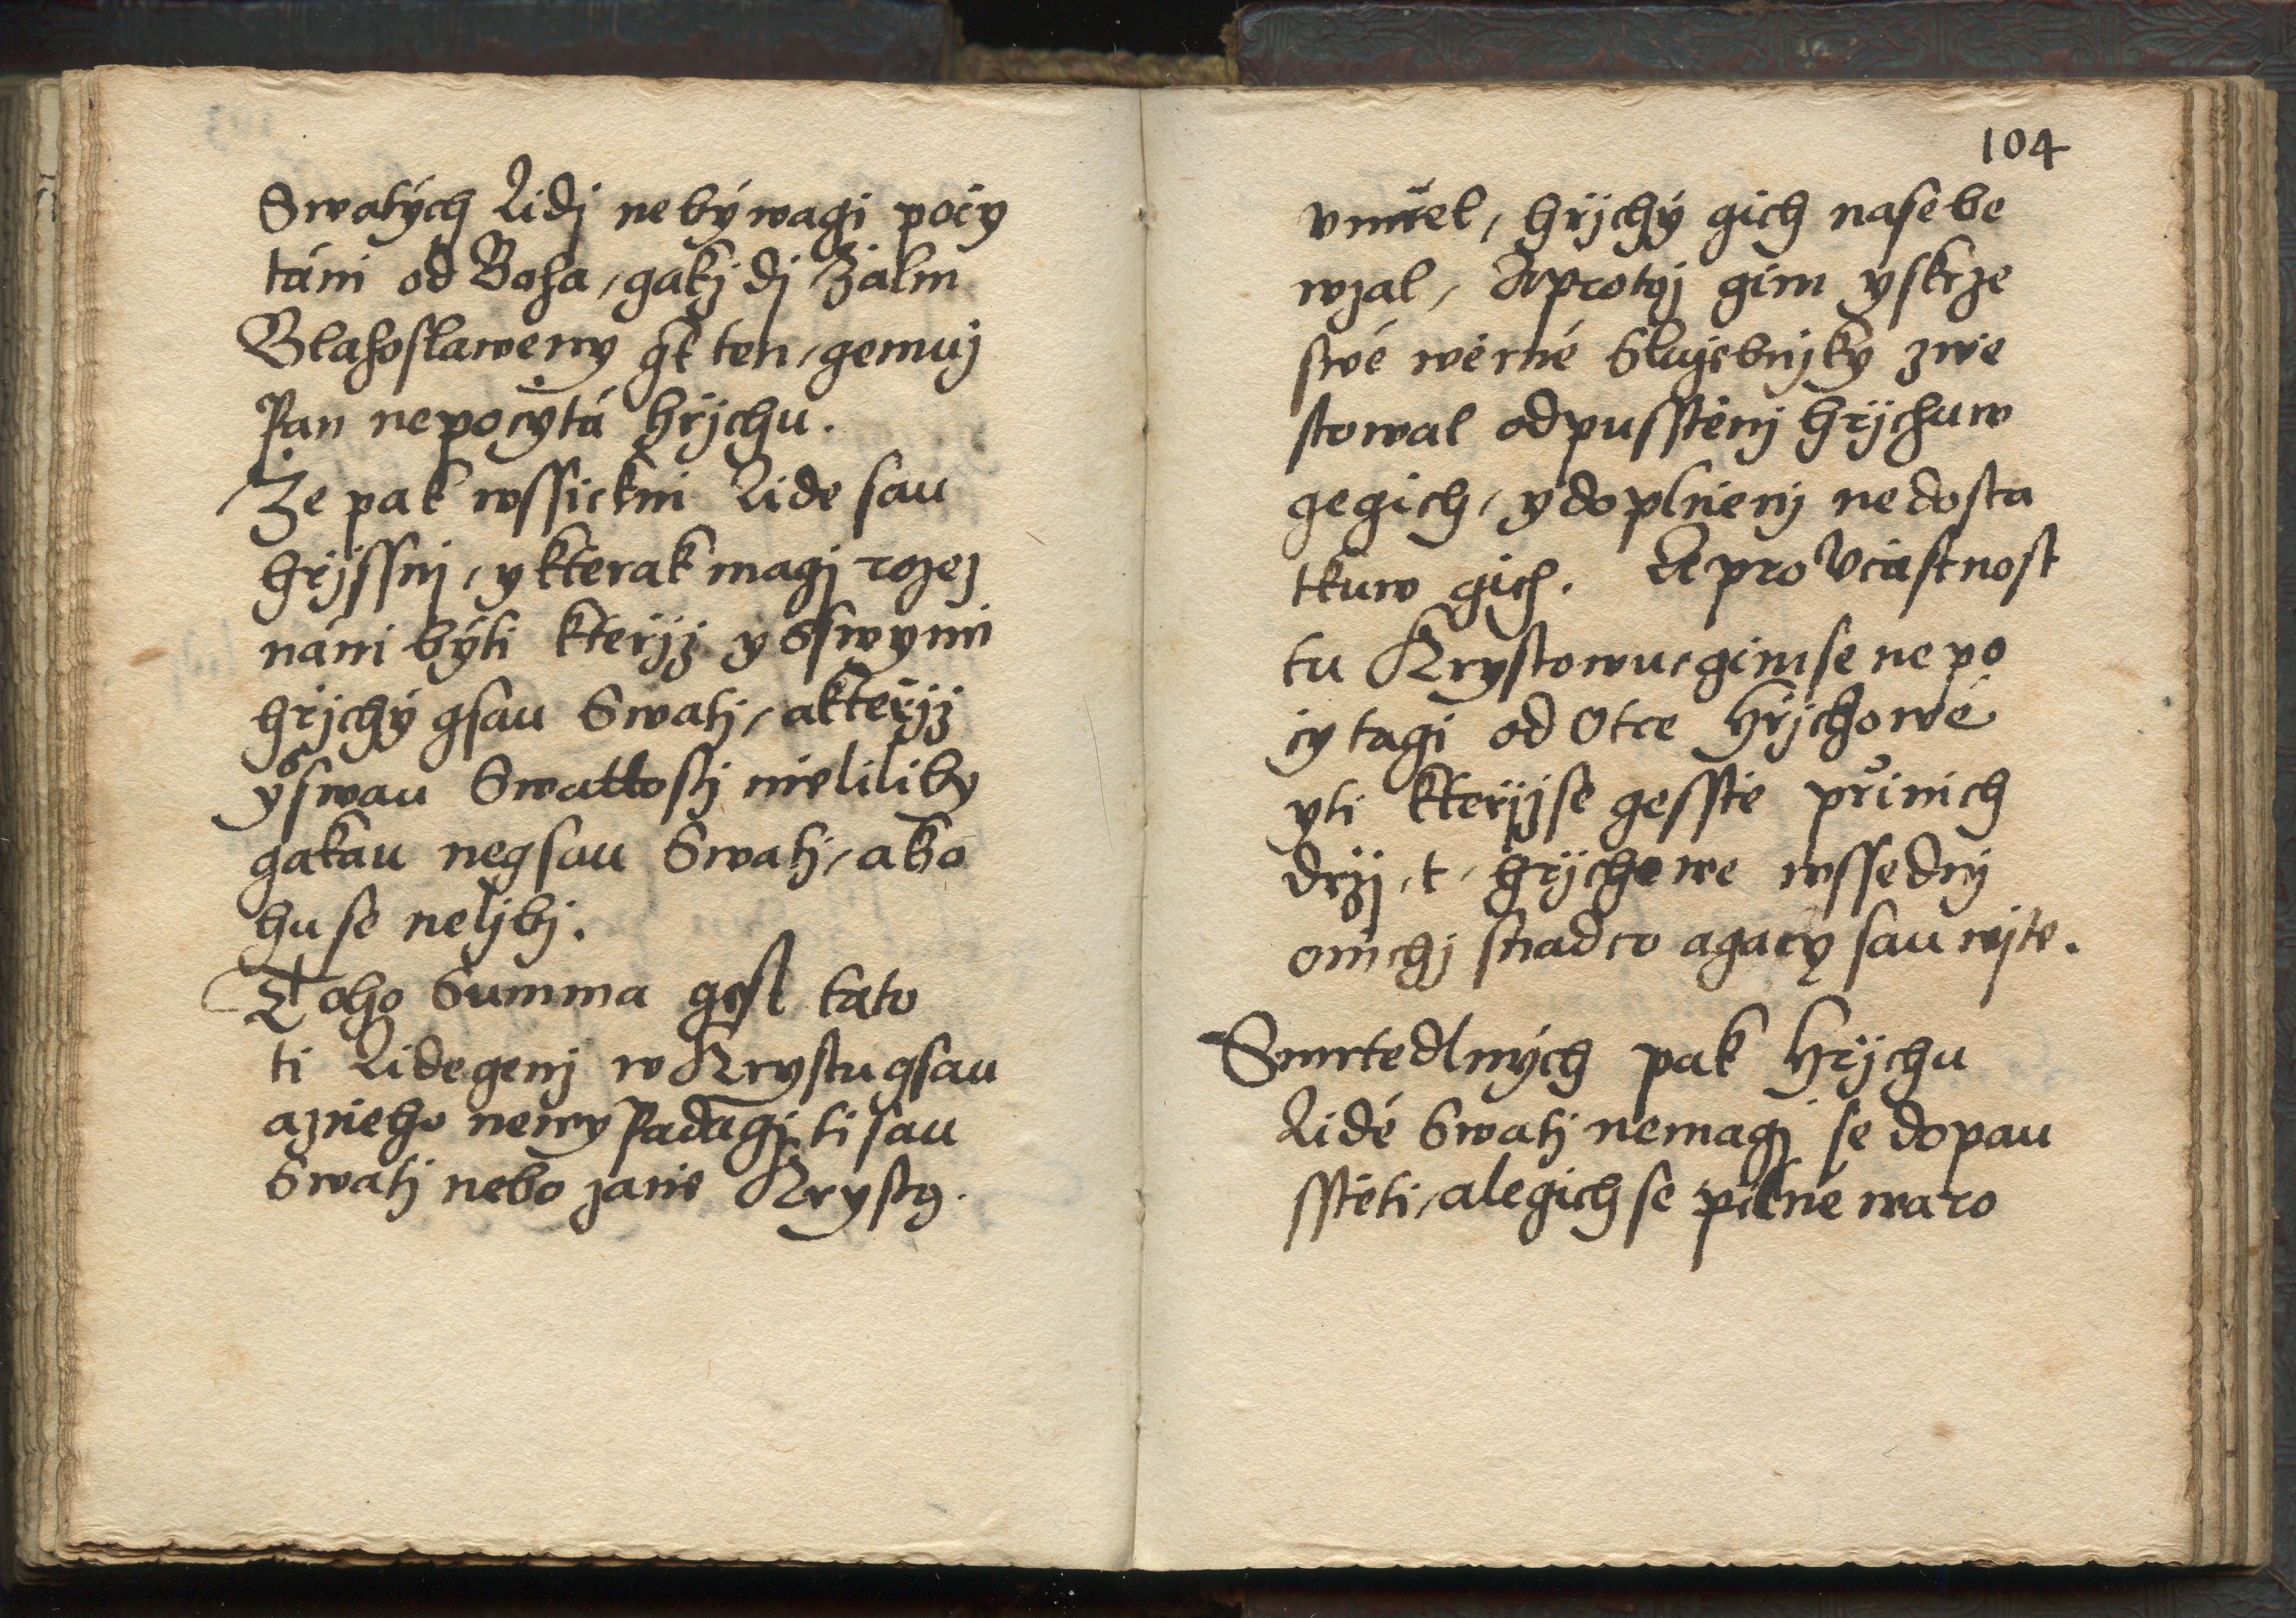 Swatých Lidj nebýwagi počy
táni od Boha, gakž dj Žalm
Blahoslaweny gt ten, gemuž
Pan nepočýtá hřjchu.
Že pak wssickni Lide sau
hřjssnj, y kterak magj rozez
náni býti kteřjž y S swymi
hřjchý gsau Swatj, a kteřjž
y S swau Swattostj mělili by
gakau negsau Swatj, a Bo
hu se neljbj.
Toho Summa gest tato
ti Lide genž w Krystu gsau
a z nieho newy Padagj, ti sau
Swatj nebo zanie Krystg.
104
vmřel, hřjchý gich na sebe
wzal, A protož gim y skrze
swé wěrné Služebnjky zwě
stowal odpusstěnj hřjchuw
gegich, y doplněnj nedosta
tkuw gich. A pro Včastnost
tu Krystowu, gim se nepo
čytagi od Otce Hřjchowé
yti kteřjž se gesstě při nich
držj, t, hřjchowe wssednj
o nichž snadco a gacy sau wjte.
Smrtedlných pak Hřjchu
Lidé Swatj nemagj se dopau
sstěti, ale gich se pilně waro